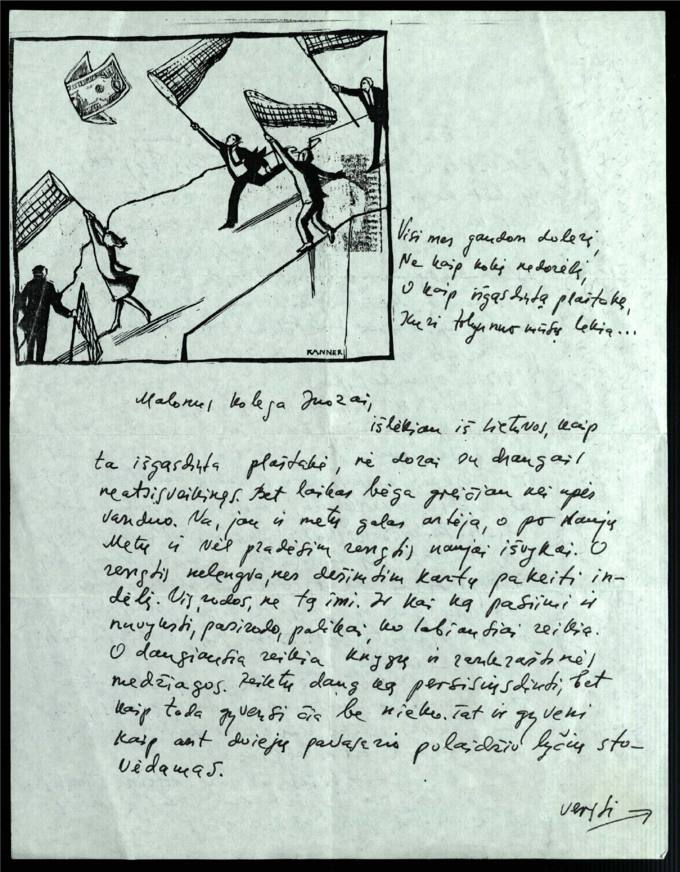 KANNER
Visi mes gaudom dolerį,
Ne kaip kokį nedorėlį,
O kaip išgąsdintą plaštakę,
Kuri tolyn nuo mūsų lekia...
Malonus kolega Juozai,
išlėkiau iš Lietuvos, kaip
ta išgąsdinta plaštakė, nė dorai su draugais
neatsisveikinęs. Bet laikas bėga greičiau nei upės
vanduo. Va, jau ir metų galas artėja, o po Naujų
Metų ir vėl pradėsim rengtis naujai išvykai. O
rengtis nelengva, nes dešimtim kartų pakeiti in-
dėlį. Vis, rodos, ne tą imi. Ir kai ką pasiimi ir
nuvyksti, pasirodo, palikai, ko labiausiai reikia.
O daugiausia reikia knygų ir rankraštinės
medžiagos. Reiktų daug ką persisiųsdinti, bet
kaip tada gyvensi čia be nieko. Tat ir gyveni
kaip ant dviejų pavasario polaidžio lyčių sto-
vėdamas.
versti →